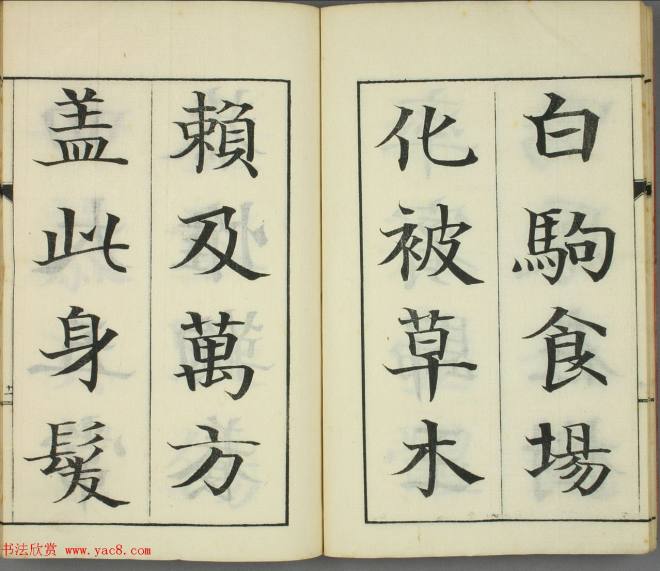 白駒食場
化被草木
賴及萬方
盖此身髮
书法欣赏 www.yac8.com